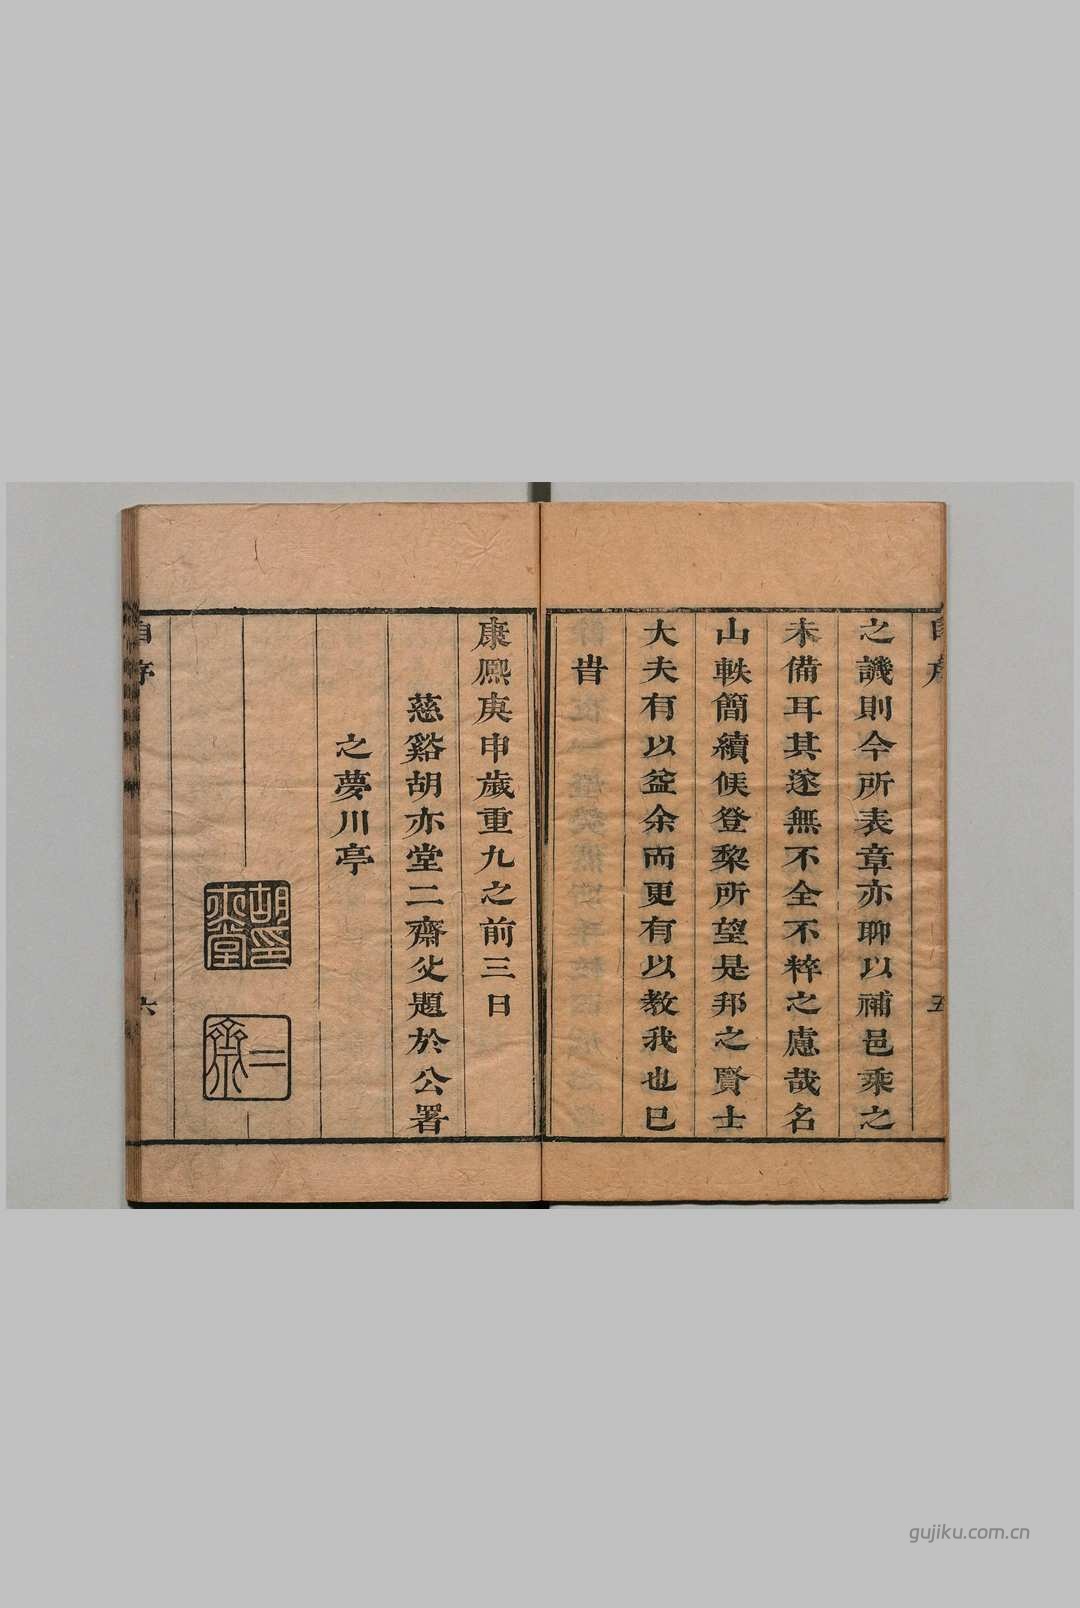 之譏則今所表章亦聊以補邑乘之
未備耳其遂無不全不粹之慮哉名
山軼簡續候登棃所望是邦之賢士
大夫有以益余而更有以教我也巳
旹
康熈庚申歲重九之前三日
慈谿胡亦堂二齋父題於公署
之夢川亭
胡印亦堂
二齋
自序
六
gujiku.com.cn